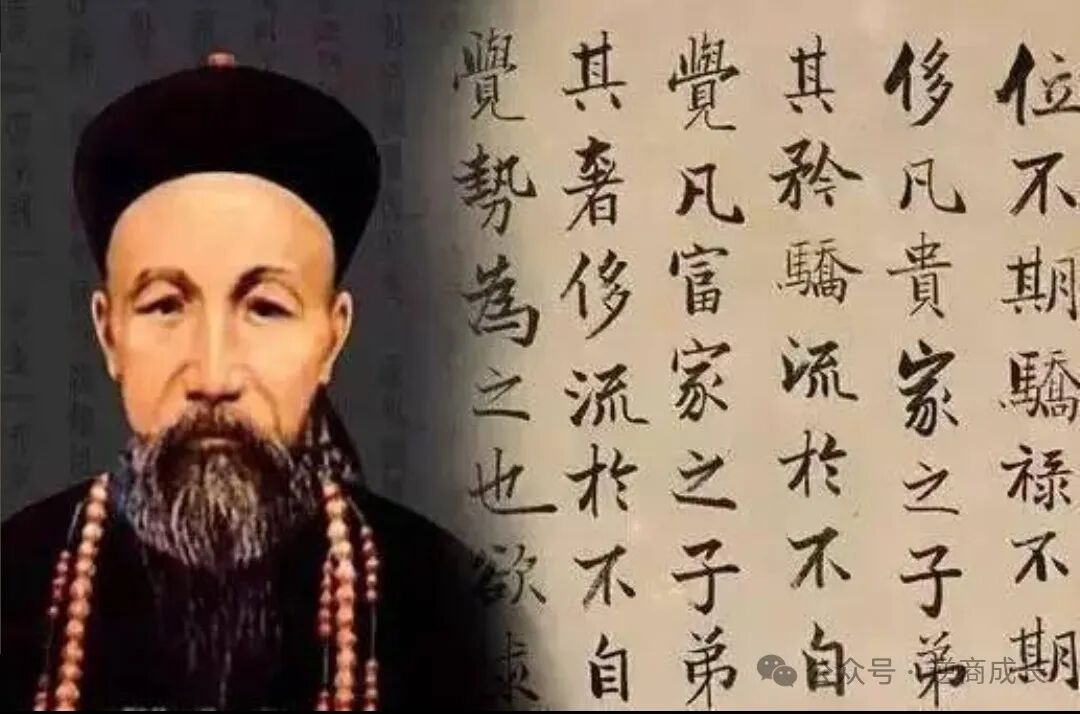 位不期驕祿不期
侈凡貴家之子弟
其矜驕流於不自
覺凡富家之子弟
其奢侈流於不自
覺勢為之也欲求
公众号·逆商成长